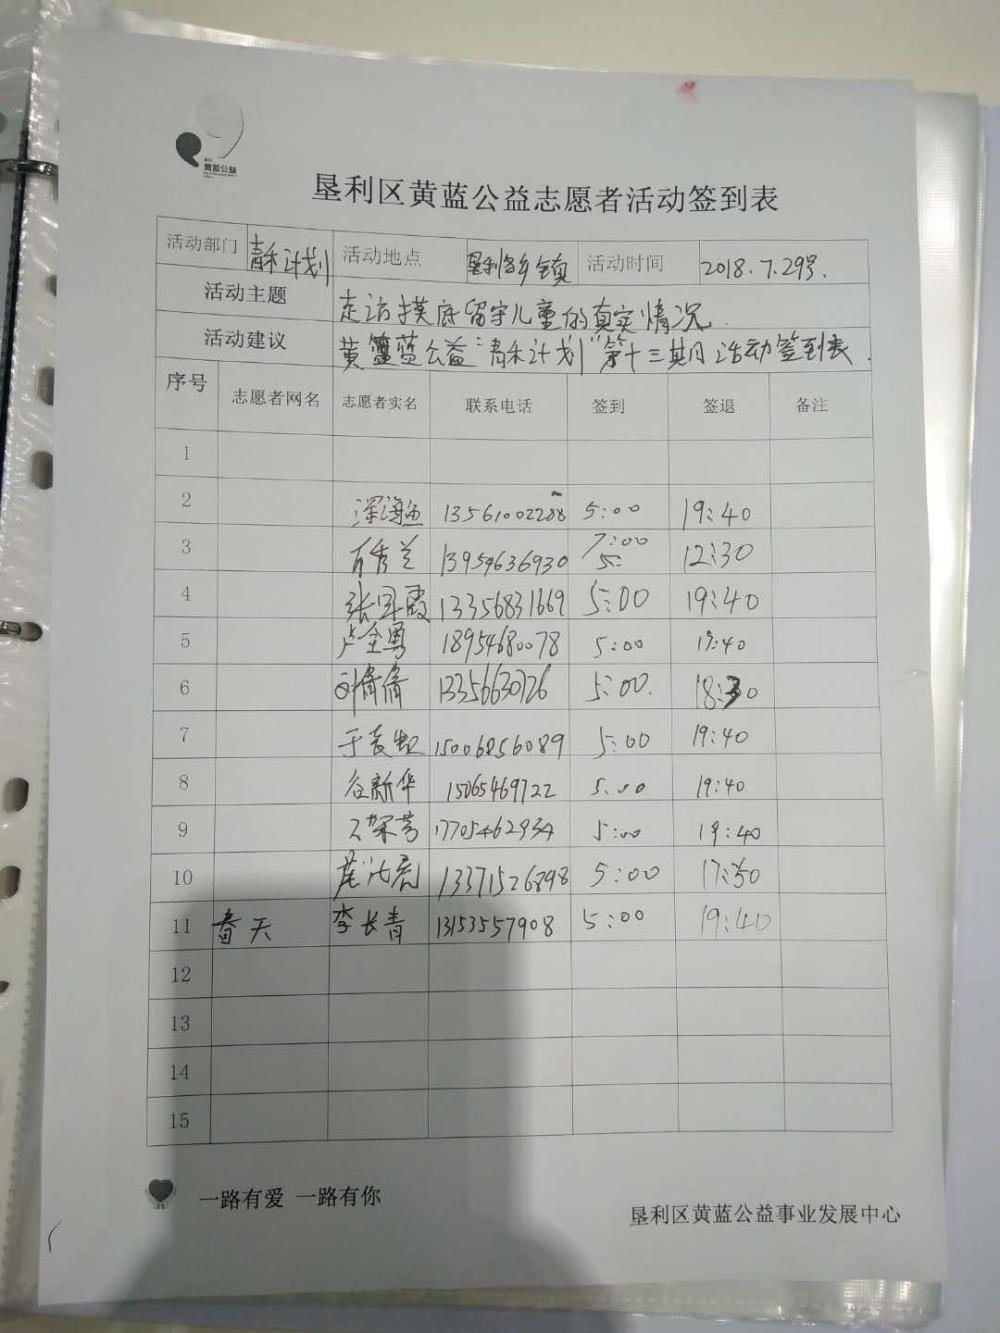 黄蓝公益
垦利区黄蓝公益志愿者活动签到表
活动部门 青禾计划 活动地点 垦利各乡镇 活动时间 2018.7.29号.
活动主题 走访摸底留守儿童的真实情况.
活动建议 黄蓝公益“青禾计划”第十三期活动签到表.
序号 志愿者网名 志愿者实名 联系电话 签到 签退 备注
1
2 深海鱼 13561002288 5:00 19:40
3 13954636930 7:00 5: 12:30
4 13356831669 5:00 19:40
5 卢全勇 18954680078 5:00 19:40
6 刘倩倩 13356630726 5:00. 18:30
7 15006856089 5:00 19:40
8 谷新华 15065469722 5:00 19:40
9 17705462934 5:00 19:40
10 13371526898 5:00 17:50
11 春天 李长青 13153557908 5:00 19:40
12
13
14
15
一路有爱 一路有你
垦利区黄蓝公益事业发展中心